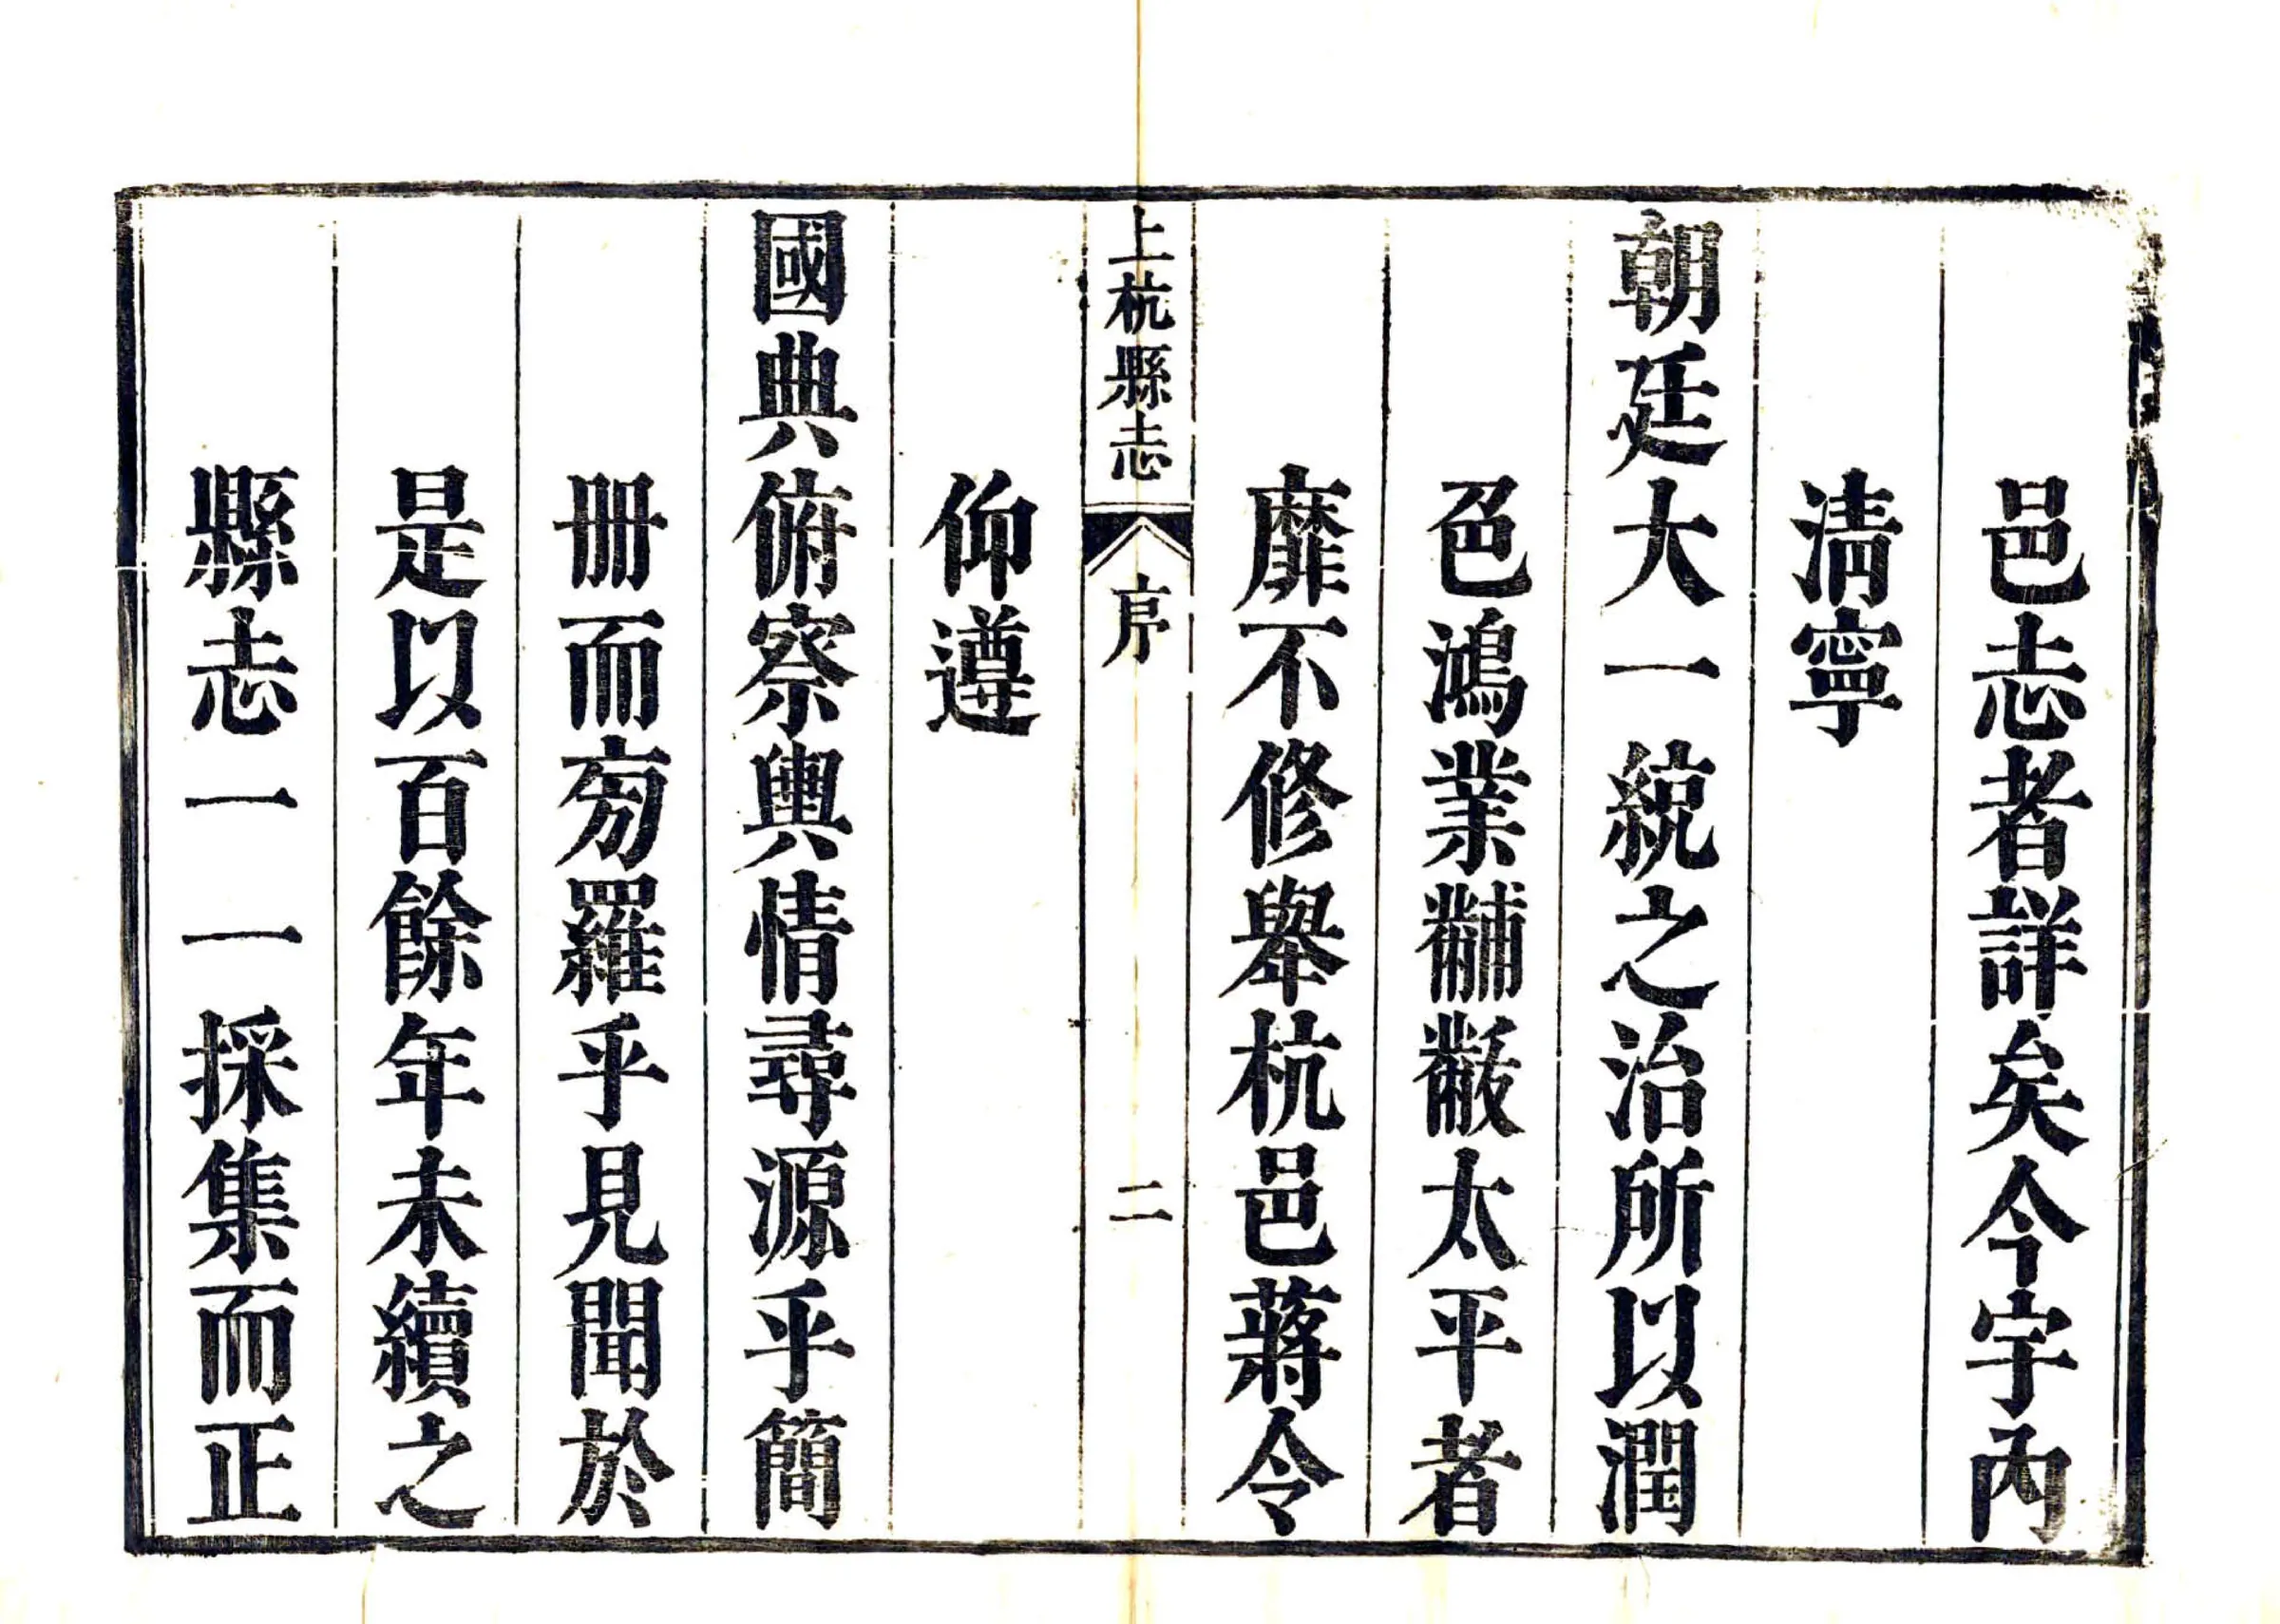 邑志者詳矣今宇內
清寧
朝廷大一統之治所以潤
色鴻業黼黻太平者
靡不修舉杭邑蔣令
上杭縣志
序
二
仰遵
國典俯察輿情尋源乎簡
冊而旁羅乎見聞於
是以百餘年未續之
縣志一一採集而正